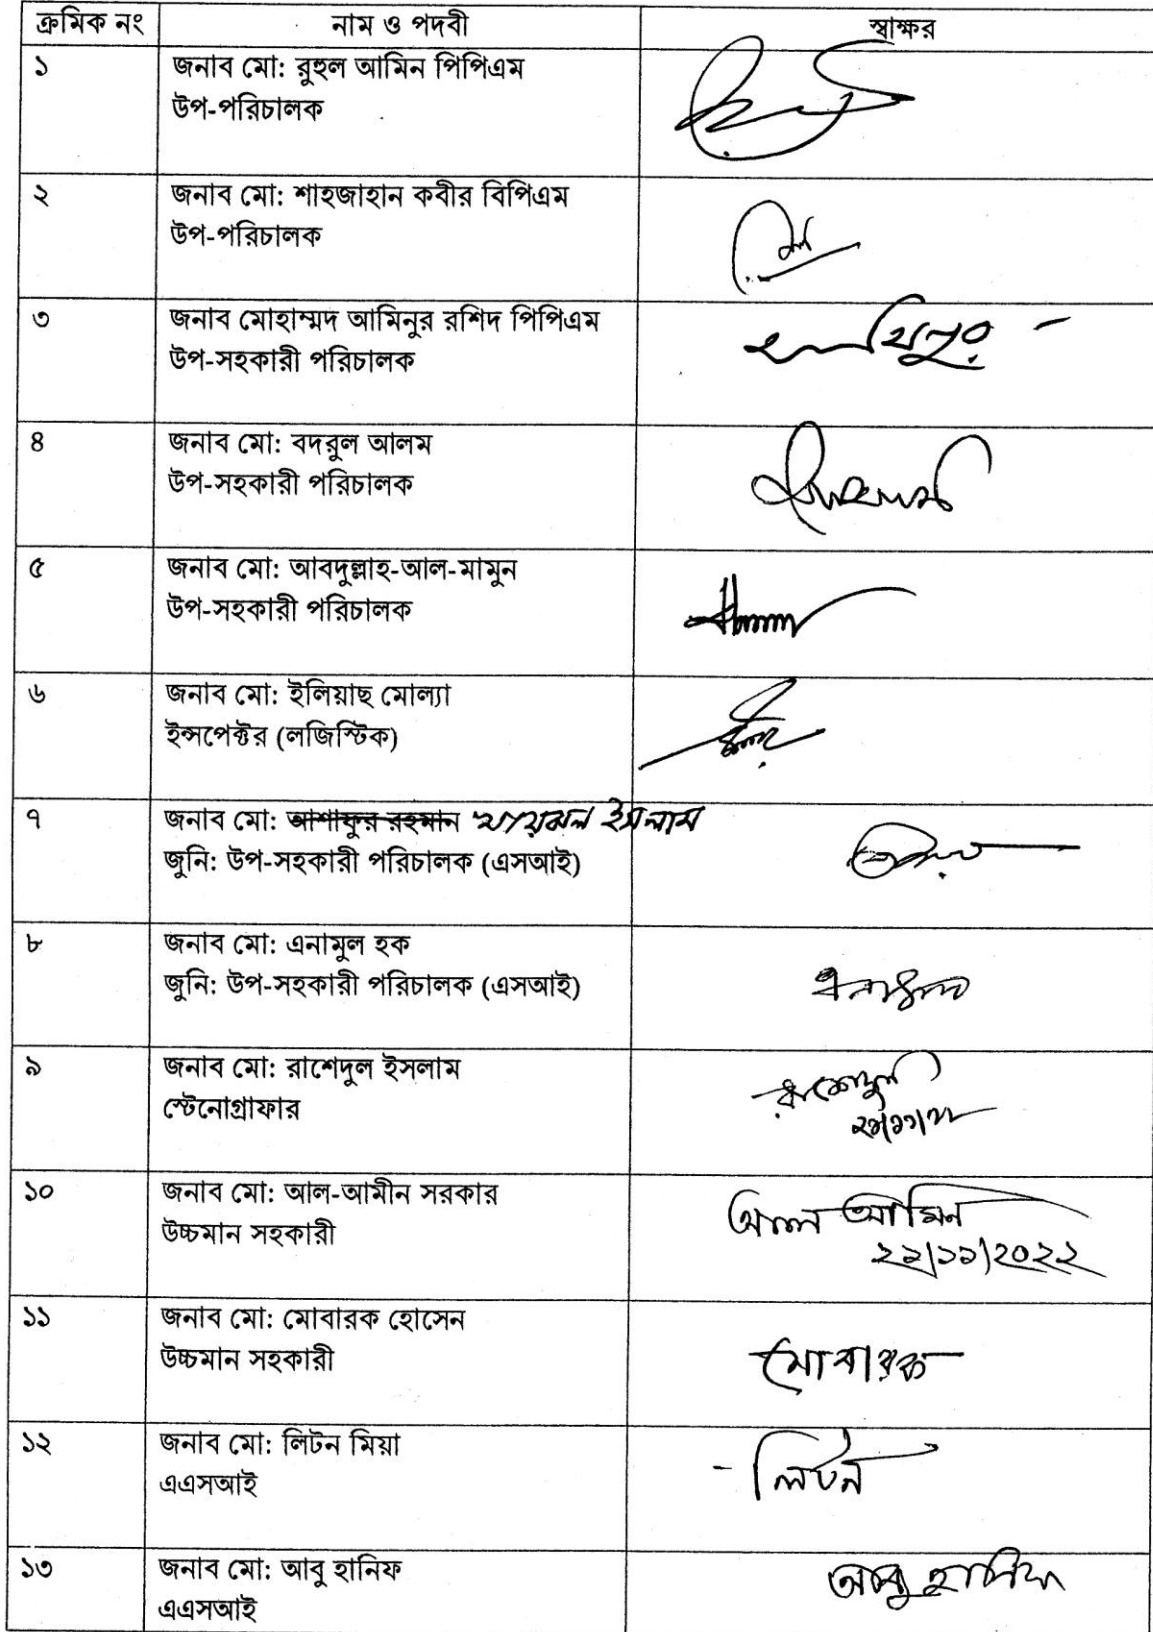 ক্রমিক নং নাম ও পদবী স্বাক্ষর
১ জনাব মো: রুহুল আমিন পিপিএম
উপ-পরিচালক
২ জনাব মো: শাহজাহান কবীর বিপিএম
উপ-পরিচালক
৩ জনাব মোহাম্মদ আমিনুর রশিদ পিপিএম
উপ-সহকারী পরিচালক
৪ জনাব মো: বদরুল আলম
উপ-সহকারী পরিচালক
৫ জনাব মো: আবদুল্লাহ-আল-মামুন
উপ-সহকারী পরিচালক
৬ জনাব মো: ইলিয়াছ মোল্যা
ইন্সপেক্টর (লজিস্টিক)
৭ জনাব মো: আশাফুর রহমান ইসলাম
জুনি: উপ-সহকারী পরিচালক (এসআই)
৮ জনাব মো: এনামুল হক
জুনি: উপ-সহকারী পরিচালক (এসআই)
এনামুল
৯ জনাব মো: রাশেদুল ইসলাম
স্টেনোগ্রাফার
রাশেদুল
১০ জনাব মো: আল-আমীন সরকার
উচ্চমান সহকারী
আল আমিন
২২/১১/২০২২
১১ জনাব মো: মোবারক হোসেন
উচ্চমান সহকারী
মোবারক
১২ জনাব মো: লিটন মিয়া
এএসআই
লিটন
১৩ জনাব মো: আবু হানিফ
এএসআই
আবু হানিফ